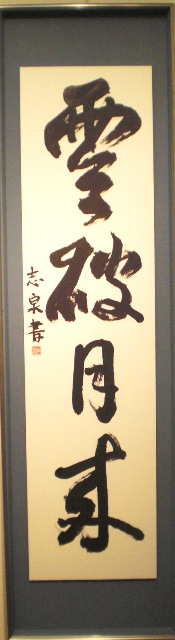 雲破月来
志泉書